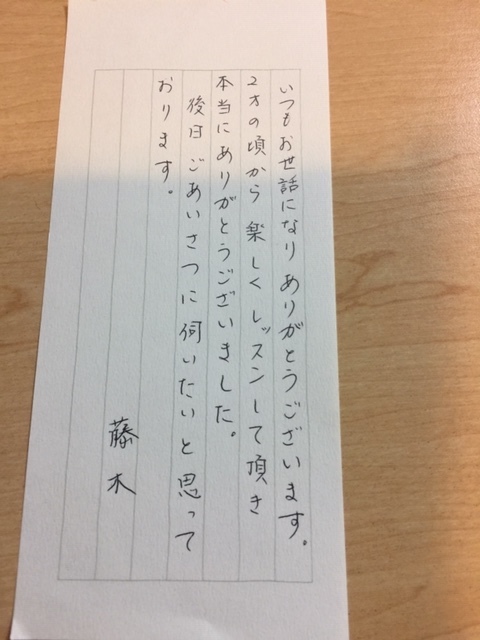 いつもお世話になり ありがとうございます。
2才の頃から 楽しく レッスンして 頂き
本当に ありがとうございました。
後日 ごあいさつに 伺いたい と 思って
おります。
藤木